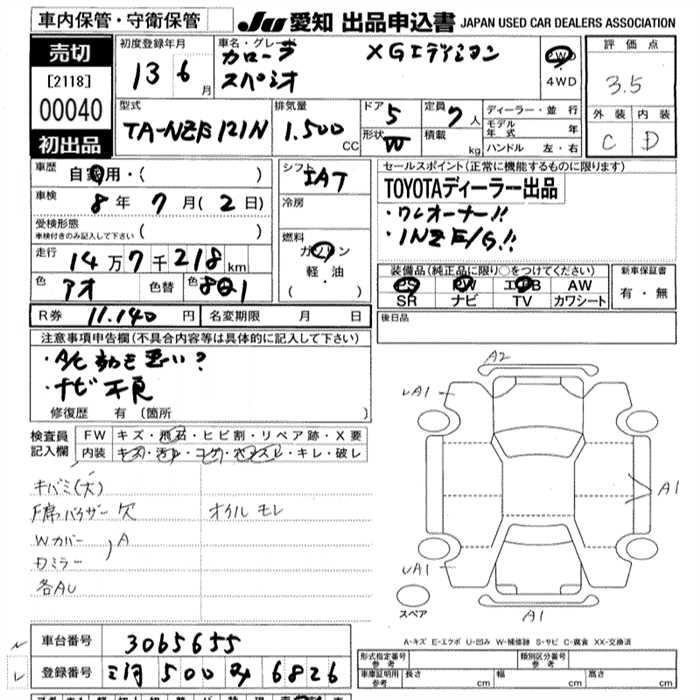 車内保管・守衛保管
JU 愛知 出品申込書 JAPAN USED CAR DEALERS ASSOCIATION
売切
[2118]
00040
初出品
初度登録年月
13 6月
車名・グレード
カローラ XGエディション
スパシオ
2WD
4WD
評価点
3.5
外装 内装
C D
型式
TA-NZE121N
排気量
1.500 CC
ドア 5
形状 W
定員 7人
積載 kg
ディーラー・並行
モデル年式 年
ハンドル 左・右
車歴
自家用・( )
車検
8年 7月(2日)
受検形態
車検付きのみ記入して下さい ( )
走行
14万7千218km
色 アオ 色替 色 8Q1
シフト
IAT
冷房
燃料
ガソリン
軽・油
( ・ )
セールスポイント(正常に機能するものに限ります)
TOYOTAディーラー出品
・ワンオーナー!!
・1NZ E/G!!
装備品(純正品に限り○をつけてください)
PS PW エアB AW
SR ナビ TV カワシート
新車保証書
有・無
R券 11.140円 名変期限 月 日
後日品
注意事項申告欄(不具合内容等は具体的に記入して下さい)
・A/C 効き悪い?
・ナビ 不良
修復歴 有 〔箇所 〕
検査員
記入欄
FW キズ・飛石・ヒビ割・リペア跡・X要
内装 キズ・汚れ・コゲ・穴・スレ・キレ・破レ
キバミ(大)
F席バイザー欠 オイルモレ
Wカバー
Dミラー ) A
各AU
A2
A1
A1
A1
A1
スペア
A-キズ E-エクボ U-凹み W-補修跡 S-サビ C-腐食 XX-交換済
車台番号 3065655
登録番号 三河 500 6826
形式指定番号
参考
類別区分番号
参考
車庫証明用
参考
長さ cm 幅 cm 高さ cm